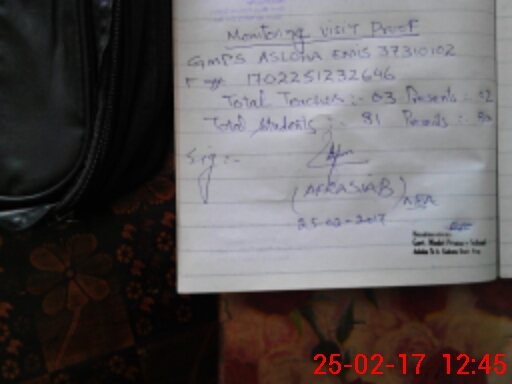 Monitoring Visit Proof
GMPS ASLOHA EMIS 37310102
1702251232646
Total Teachers :- 03 Presents :- 02
Total Students :- 81 Presents :- 80
Sig :-
(AFRASIAB)
AEA
25-02-2017
Govt. Model Primary School
25-02-17 12:45